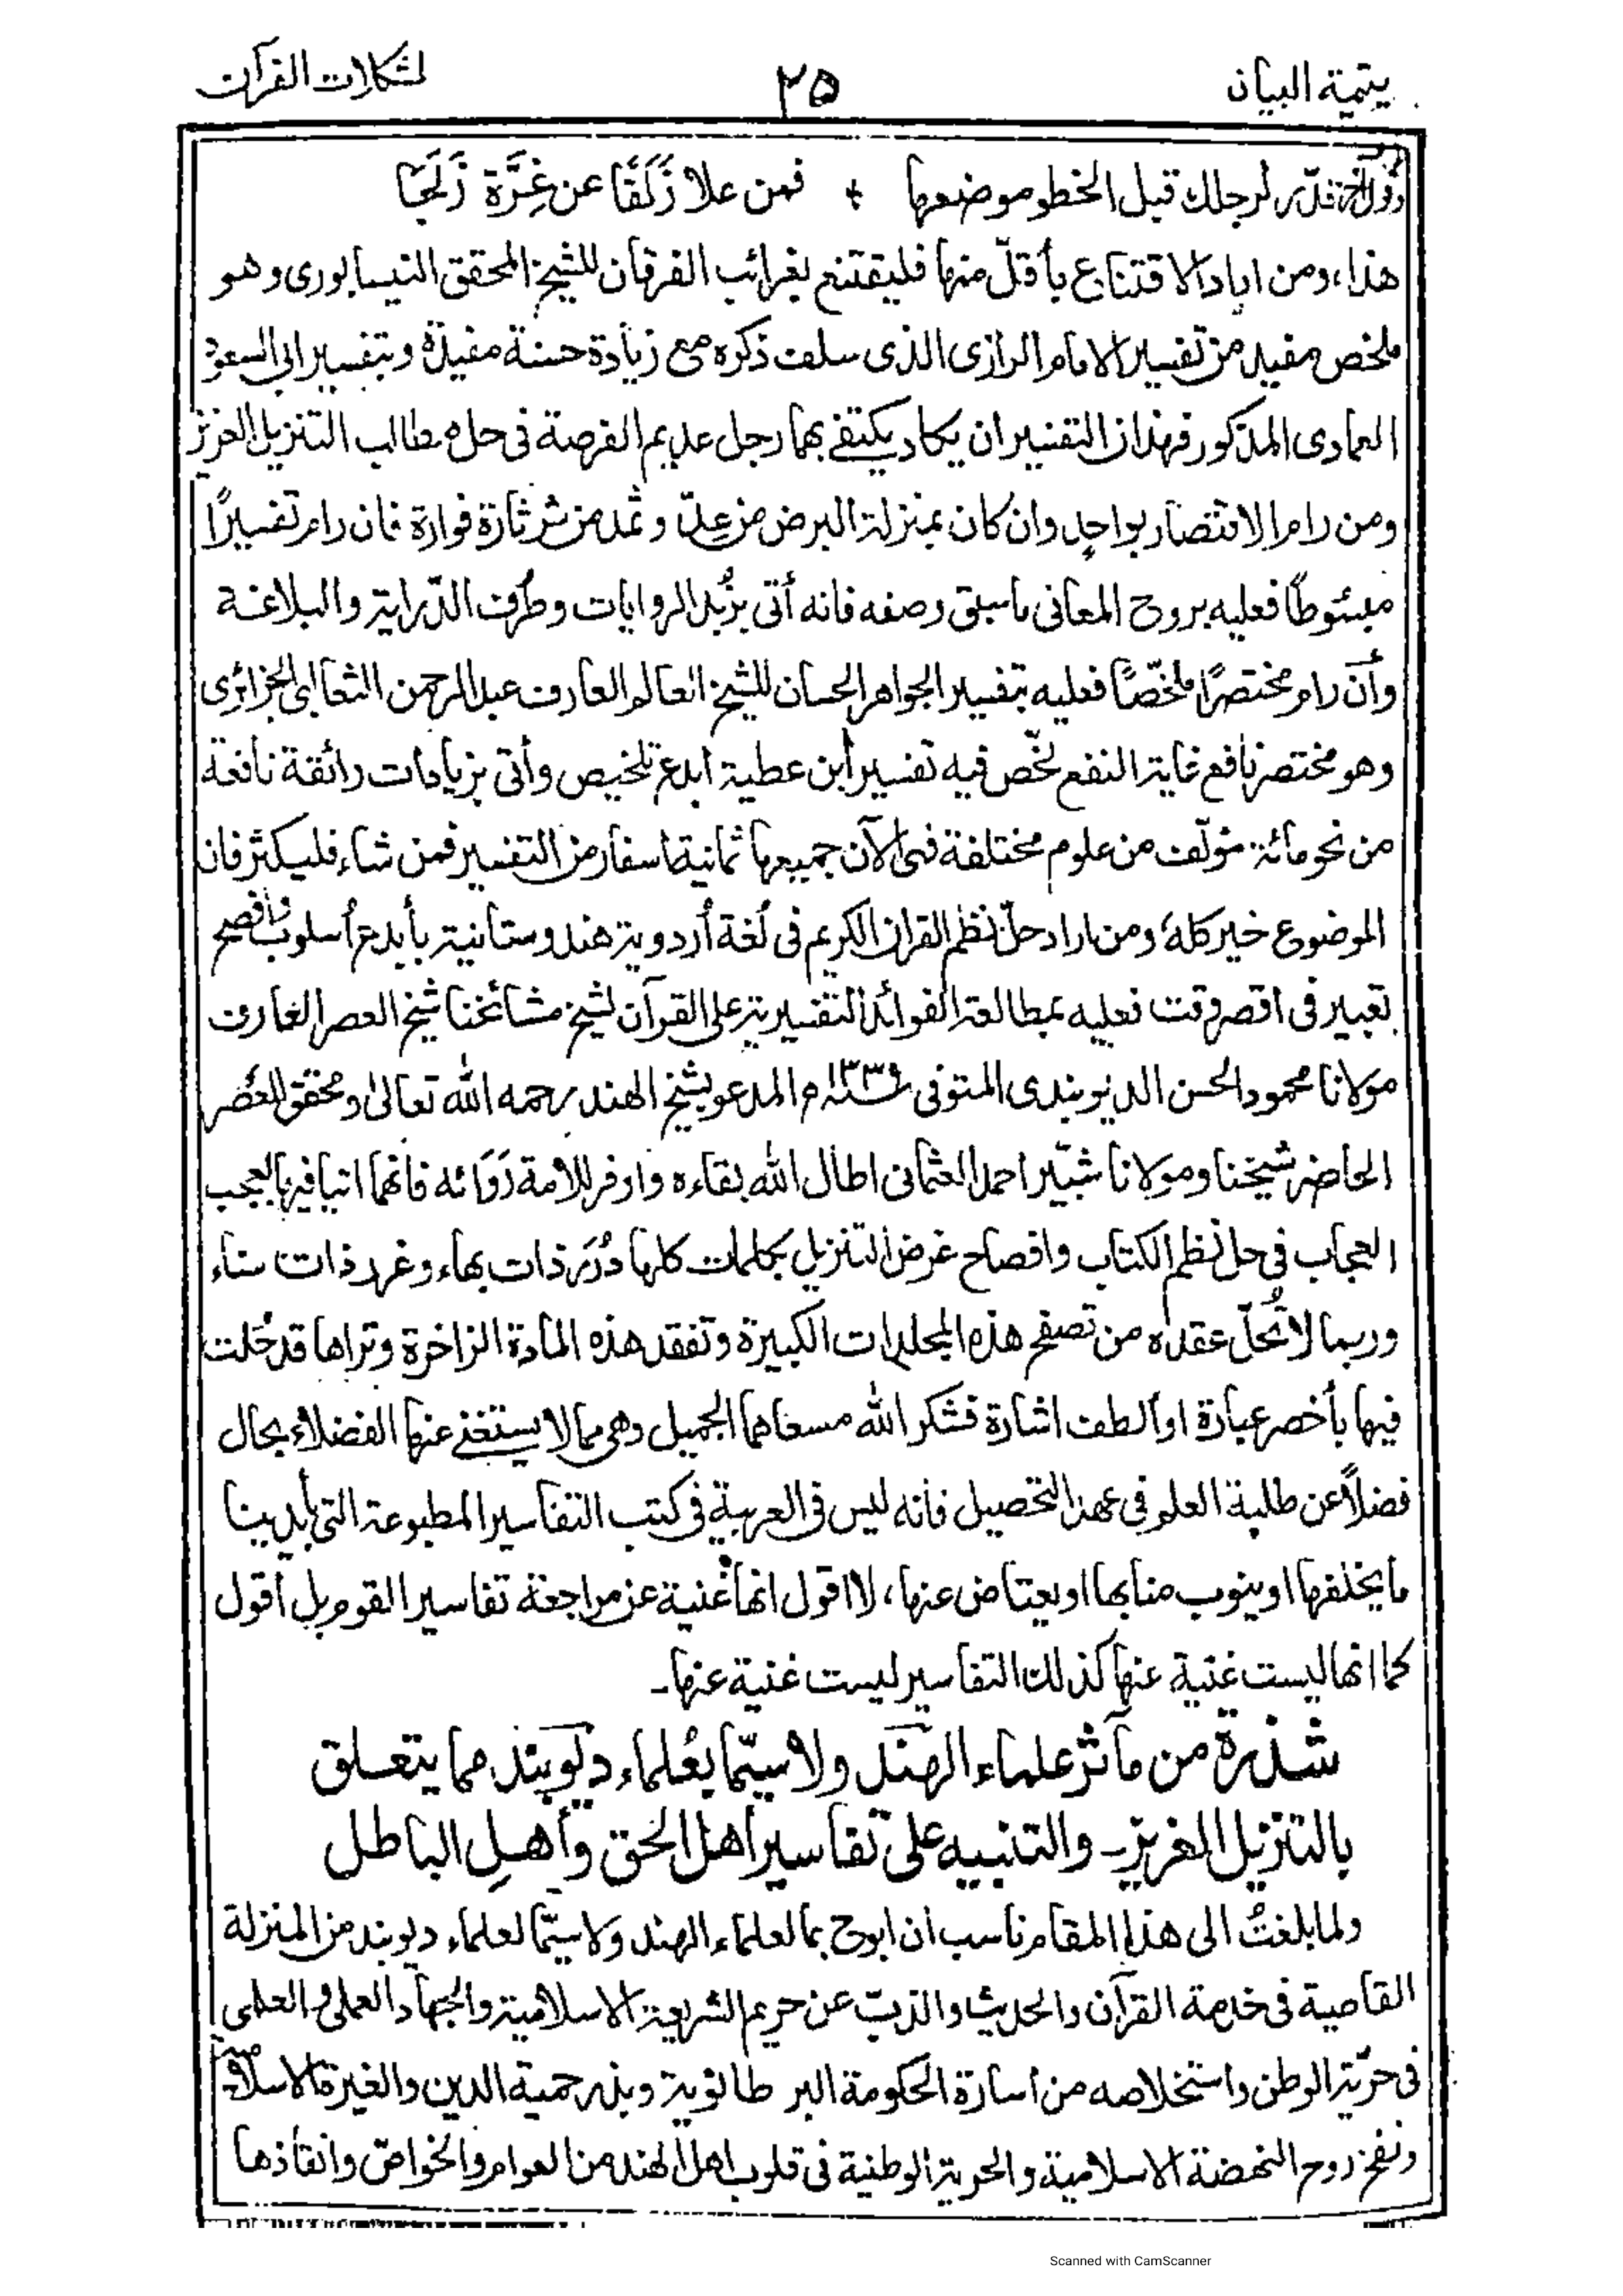 يتيمة البيان ٢٥ لمشكلات القرآن
فقدّر لرجلك قبل الخطو موضعها + فمن علا زَلَقًا عن غِرَّة زَلَجَا
هذا، ومن اراد الاقتناع بأقلّ منها فليقتنع بغرائب الفرقان للشيخ المحقق النيسابوري وهو
ملخص مفيد من تفسير الامام الرازي الذي سلف ذكره مع زيادة حسنة مفيدة وبتفسير ابي السعود
العمادي المذكور فهذان التفسيران يكاد يكتفي بهما رجل عديم الفرصة في حل مطالب التنزيل العزيز
ومن رام الاقتصار بواحد وان كان بمنزلة البرض من عدّ وثمد من ثرثارة فوارة فان رام تفسيرًا
مبسوطًا فعليه بروح المعاني ما سبق وصفه فانه أتى بزُبد الروايات وطُرف الدّراية والبلاغة
وأن رام مختصرًا ملخّصًا فعليه بتفسير الجواهر الحسان للشيخ العالم العارف عبد الرحمن الثعالبي الجزائري
وهو مختصر نافع غاية النفع لخّص فيه تفسير أبن عطية ابدع تلخيص وأتى بزيادات رائقة نافعة
من نحو مائة مؤلّف من علوم مختلفة فهى الآن جميعها ثمانية اسفار من التفسير فمن شاء فليكثر فان
الموضوع خير كله، ومن اراد حلّ نظم القران الكريم في لُغة أردوية هندوستانية بأبدع أسلوب وأفصح
تعبير في اقصر وقت فعليه بمطالعة الفوائد التفسيرية على القرآن لشيخ مشائخنا شيخ العصر العارف
مولانا محمود الحسن الديوبندي المتوفى ١٣٣٩ﻫ م المدعو بشيخ الهند رحمه الله تعالى ومحقق العصر
الحاضر شيخنا ومولانا شبّير احمد العثماني اطال الله بقاءه واوفر للامة رَوَائه فانهما اتيا فيها بالعجب
العجاب في حل نظم الكتاب وافصاح غرض التنزيل بكلمات كلها دُرَر ذات بهاء وغرر ذات سناء
وربما لا تُحلّ عقده من تصفح هذه المجلدات الكبيرة وتفقد هذه المادة الزاخرة وتراها قد حُلت
فيها بأخصر عبارة او ألطف اشارة فشكر الله مسعاهما الجميل وهي مما لا يستغني عنها الفضلاء بحال
فضلاً عن طلبة العلوم في عهد التحصيل فانه ليس في العربية في كتب التفاسير المطبوعة التي بأيدينا
ما يخلفها او ينوب منابها او يعتاض عنها، لا اقول انها غُنية عن مراجعة تفاسير القوم بل أقول
كما انها ليست غنية عنها كذلك التفاسير ليست غنية عنها۔
شذرة من مآثر علماء الهند ولا سيّما بعُلماء ديوبند مما يتعلق
بالتنزيل العزيز۔ والتنبيه على تفاسير أهل الحق وأهلِ الباطل
ولما بلغتُ الى هذا المقام ناسب ان ابوح بما لعلماء الهند ولا سيّما لعلماء ديوبند من المنزلة
القاصية في خدمة القرآن والحديث والذبّ عن حريم الشريعة الاسلامية والجهاد العملي والعلمي
في حرّية الوطن واستخلاصه من اسارة الحكومة البرطانوية وبذر حمية الدين والغيرة الاسلامية
ونفخ روح النهضة الاسلامية والحرية الوطنية في قلوب اهل الهند من العوام والخواصّ وانقاذها
Scanned with CamScanner